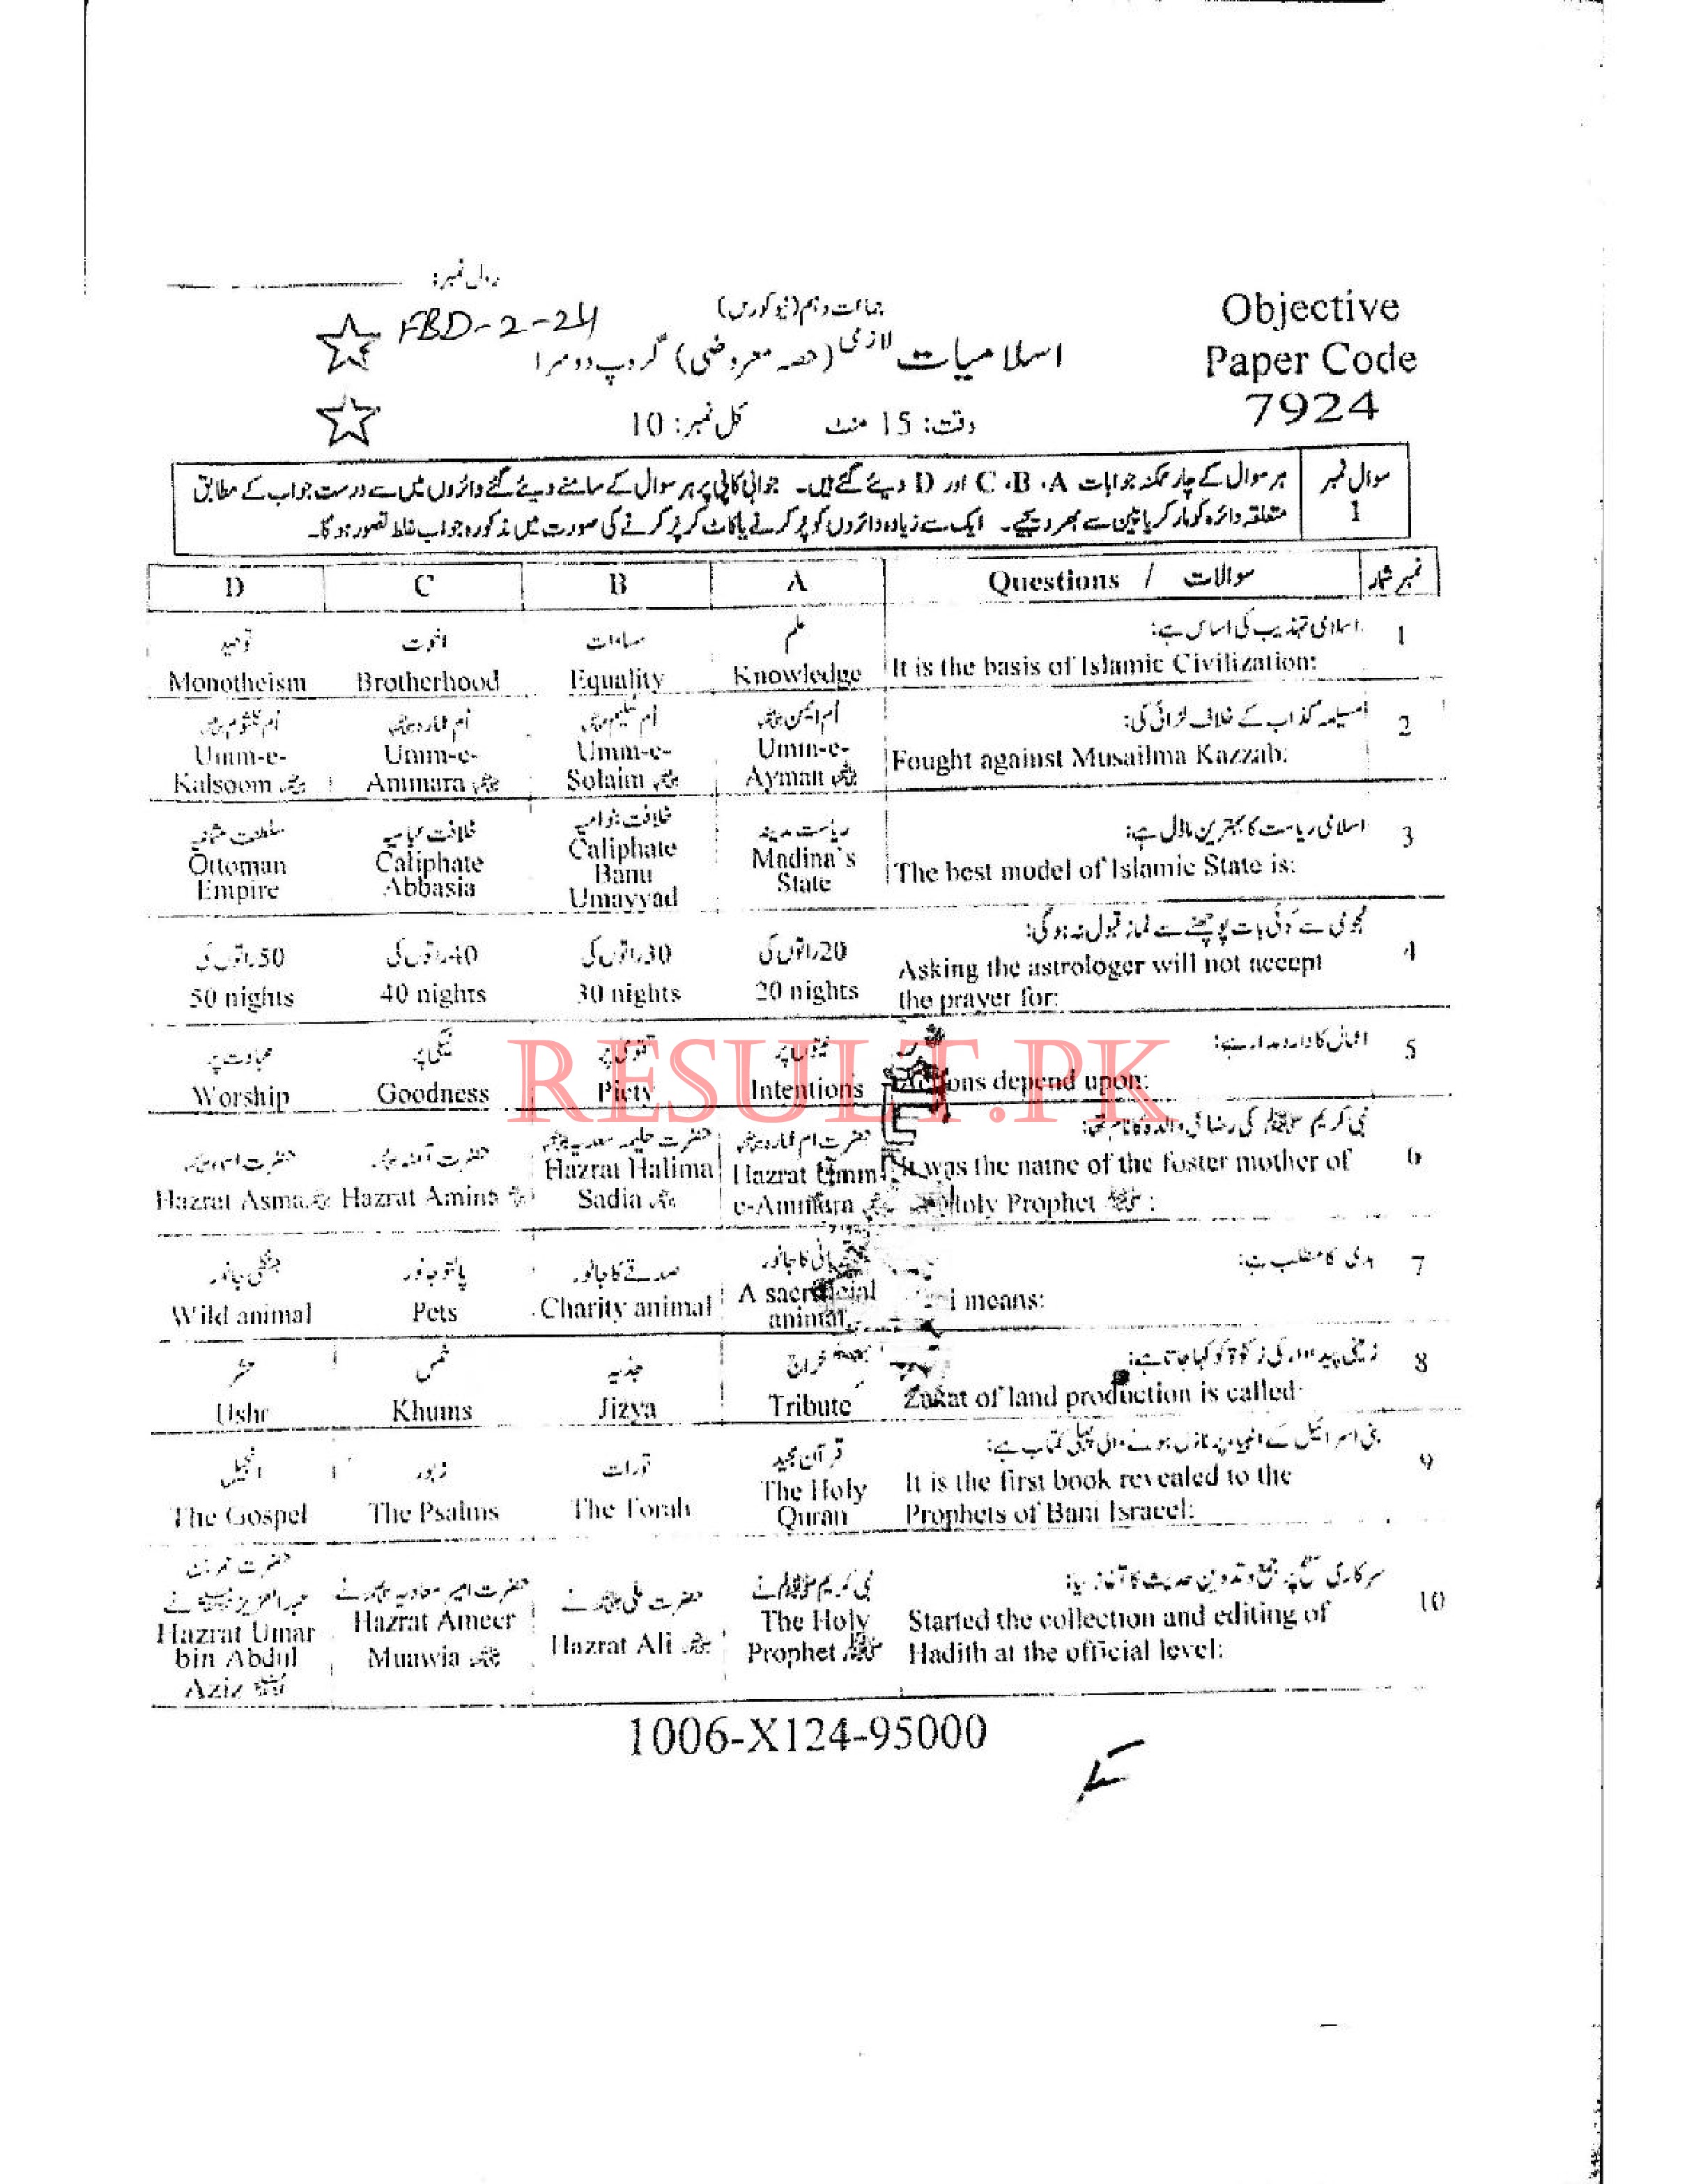 رول نمبر:
FBD-2-24
جماعت دہم (نیو کورس)
Objective
Paper Code
7924
اسلامیات لازمی (حصہ معروضی) گروپ دوسرا
وقت: 15 منٹ کل نمبر: 10
سوال نمبر 1
ہر سوال کے چار ممکنہ جوابات A ،B ،C اور D دیئے گئے ہیں۔ جوابی کاپی پر ہر سوال کے سامنے دیئے گئے دائروں میں سے درست جواب کے مطابق
متعلقہ دائرہ کو مارکر یا پین سے بھر دیجئے۔ ایک سے زیادہ دائروں کو پر کرنے یا کاٹ کر پر کرنے کی صورت میں مذکورہ جواب غلط تصور ہو گا۔
نمبر شمار سوالات / Questions A B C D
1 اسلامی تہذیب کی اساس ہے:
It is the basis of Islamic Civilization:
علم مساوات اخوت توحید
Knowledge Equality Brotherhood Monotheism
2 مسیلمہ کذاب کے خلاف لڑائی کی:
Fought against Musailma Kazzab:
اُم ایمن اُم سلیم اُم عمارہ اُم کلثوم
Umm-e- Umm-e- Umm-e- Umm-e-
Ayman Solaim Ammara Kalsoom
3 اسلامی ریاست کا بہترین ماڈل ہے:
The best model of Islamic State is:
ریاست مدینہ خلافت بنو امیہ خلافت عباسیہ سلطنت عثمانیہ
Madina's State
Caliphate Banu Umayyad
Caliphate Abbasia
Ottoman Empire
4 نجومی سے کوئی بات پوچھنے سے نماز قبول نہ ہو گی:
Asking the astrologer will not accept
the prayer for:
20 راتوں کی 30 راتوں کی 40 راتوں کی 50 راتوں کی
20 nights 30 nights 40 nights 50 nights
5 اعمال کا دارومدار ہے:
depend upon:
نیتوں پر تقویٰ پر نیکی پر عبادت پر
Intentions Piety Goodness Worship
RESULT.PK
6 نبی کریم ﷺ کی رضاعی والدہ کا نام تھا:
It was the name of the foster mother of
Holy Prophet ﷺ :
حضرت ام عمارہ حضرت حلیمہ سعدیہ حضرت آمنہ حضرت اسماء
Hazrat Umm-e-Ammara
Hazrat Halima Sadia
Hazrat Amina
Hazrat Asma
7 ہدی کا مطلب ہے:
means:
قربانی کا جانور صدقے کا جانور پالتو جانور جنگلی جانور
A sacrificial animal
Charity animal Pets Wild animal
8 زمینی پیداوار کی زکوٰۃ کو کہا جاتا ہے:
Zakat of land production is called:
خراج جذیہ خمس عشر
Tribute Jizya Khums Ushr
9 بنی اسرائیل کے انبیاء پر نازل ہونے والی پہلی کتاب ہے:
It is the first book revealed to the
Prophets of Bani Israeel:
قرآن مجید تورات زبور انجیل
The Holy Quran
The Torah The Psalms The Gospel
10 سرکاری سطح پر جمع و تدوین حدیث کا آغاز کیا:
Started the collection and editing of
Hadith at the official level:
نبی کریم ﷺ نے حضرت علی نے حضرت امیر معاویہ نے حضرت عمر بن عبدالعزیز نے
The Holy Prophet ﷺ
Hazrat Ali
Hazrat Ameer Muawia
Hazrat Umar bin Abdul Aziz
1006-X124-95000